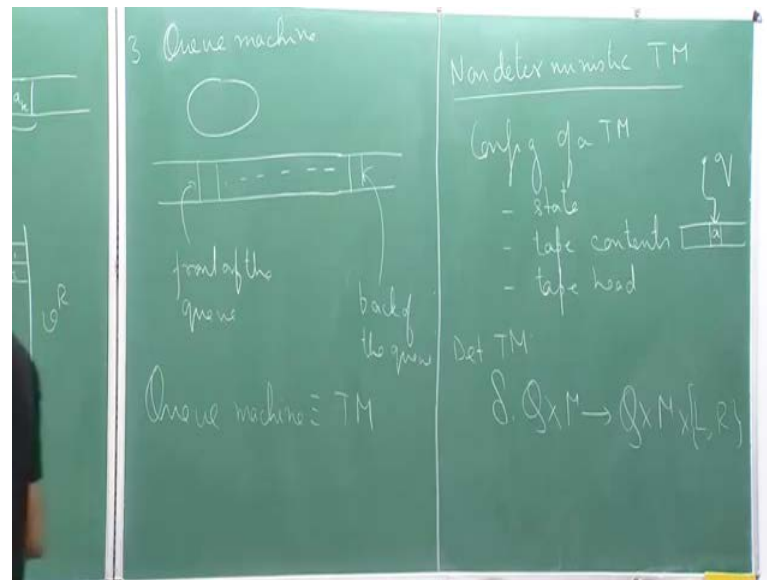 aₖ
v^R
3 Queue machine
front of the
queue
back of
the queue
Queue machine ≡ TM
Nondeterministic TM
Config of a TM
- state
- tape contents
- tape head
q
a
Det TM:
δ: Q×Γ → Q×Γ×{L,R}